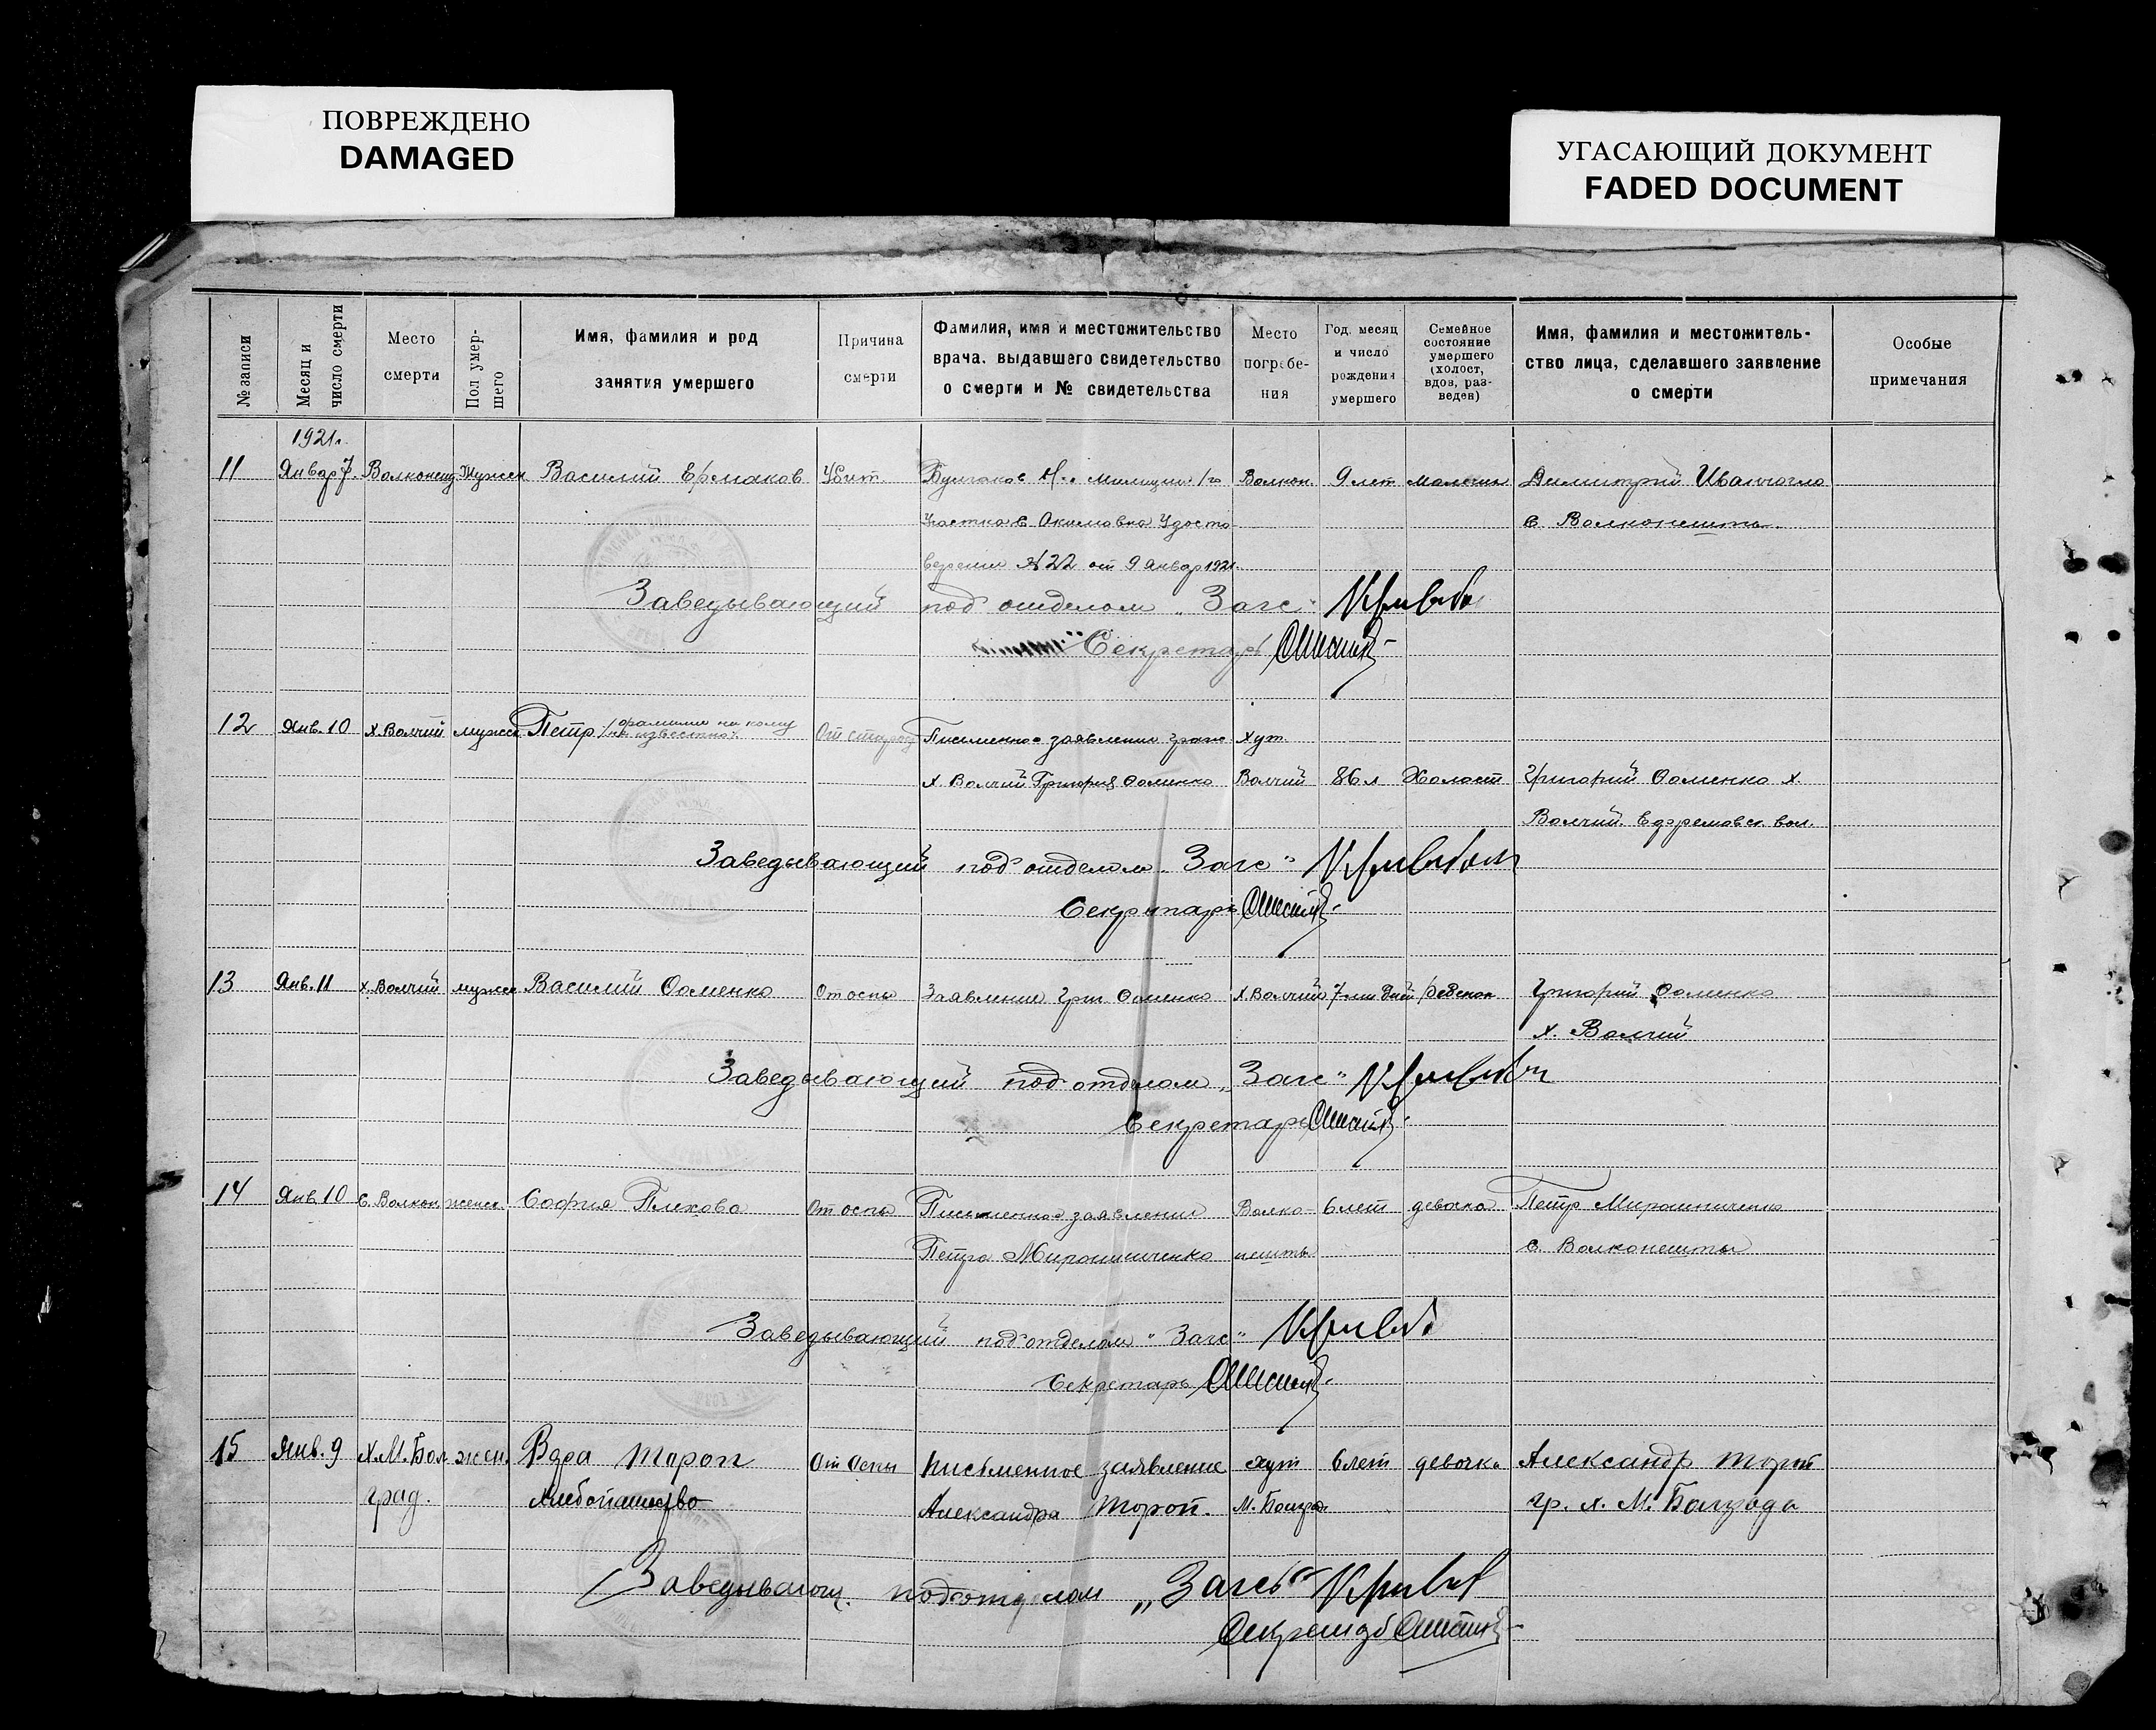 ПОВРЕЖДЕНО
DAMAGED
УГАСАЮЩИЙ ДОКУМЕНТ
FADED DOCUMENT
№ записи
Месяц и число смерти
Место смерти
Пол умер-шего
Имя, фамилия и род занятия умершего
Причина смерти
Фамилия, имя и местожительство врача, выдавшего свидетельство о смерти и № свидетельства
Место погребе-ния
Год, месяц и число рождения умершего
Семейное состояние умершего (холост, вдов, раз-веден)
Имя, фамилия и местожитель-ство лица, сделавшего заявление о смерти
Особые примечания
1921г.
11 Январ 7 Мужск Василий Ермаков Убит. Милиции 1го Волкон. 9 лет Димитрий
Участка с Акимовка Удосто с. Волконешты.
верение №22 от 9 Январ 1921.
Заведывающий подотделом „Загс"
Секретарь
12 Янв. 10 х. Волчий мужск Петр (фамилия ни кому не известна). От старос Письменное заявление граж хут.
х. Волчий Григория Фоменко Волчий 86 л Холост Григорий Фоменко х.
Волчий Ефремовск. вол.
Заведывающий подотделом „Загс"
Секретарь
13 Янв. 11 х. Волчий мужск Василий Фоменко От оспы Заявление Григ. Фоменко х. Волчий 7 ми дней ребенок Григорий Фоменко
х. Волчий
Заведывающий подотделом „Загс"
Секретарь
14 Янв 10 с. Волкон женск. София Плехова От оспы Письменное заявление Волко- 6 лет девочка Петр Мирошниченко
Петра Мирошниченко нешты с. Волконешты
Заведывающий подотделом „Загс"
Секретарь
15 Янв. 9 х. М. Бол жен. Вера Тороп От Оспы письменное заявление хут 6 лет девочка Александр Тороп
град. Хлебопашество Александра Тороп. М. Болград гр. х. М. Болграда
Заведывающ. подотделом „Загс"
Секретарь